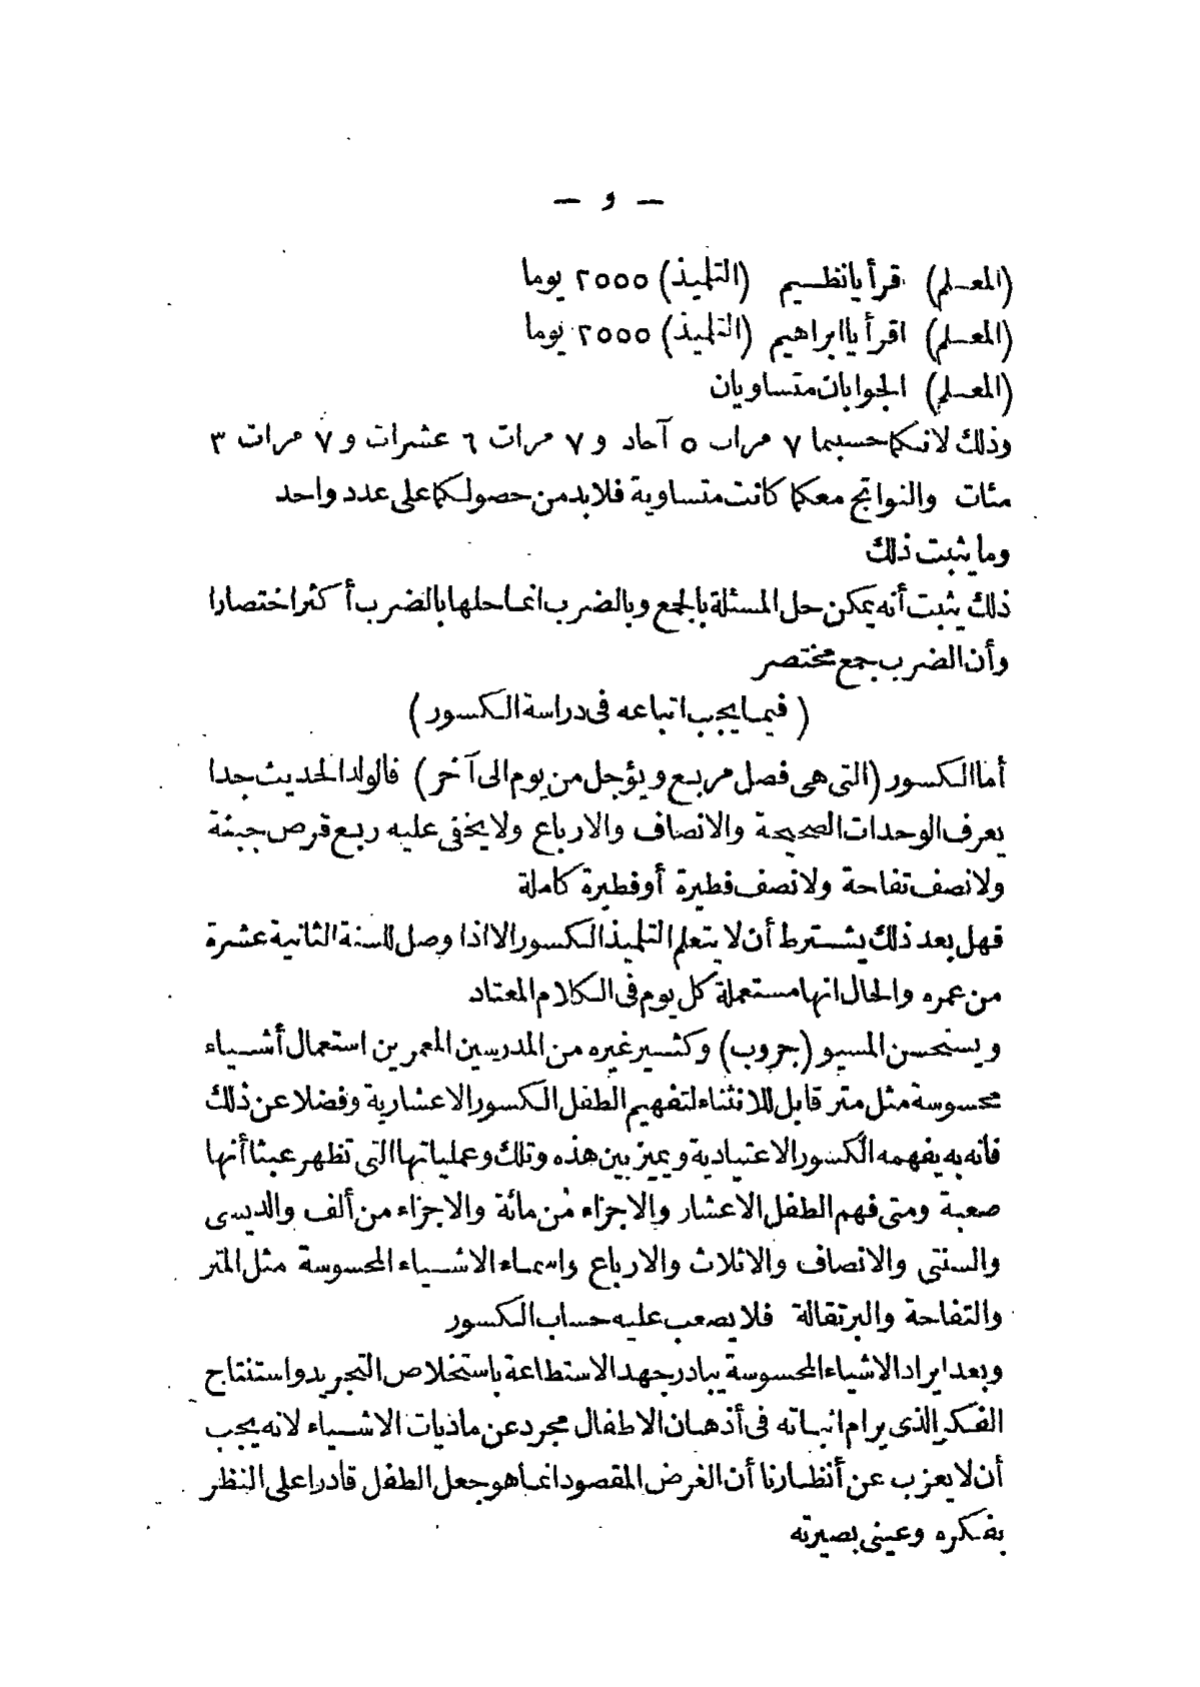 — و —
(المعلم) قرأ يا نظيم (التلميذ) ٢٥٥٥ يوما
(المعلم) اقرأ يا ابراهيم (التلميذ) ٢٥٥٥ يوما
(المعلم) الجوابان متساويان
وذلك لانكما حسبتما ٧ مرات ٥ آحاد و ٧ مرات ٦ عشرات و ٧ مرات ٣
مئات والنواتج معكما كانت متساوية فلابد من حصولكما على عدد واحد
وما يثبت ذلك
ذلك يثبت أنه يمكن حل المسئلة بالجمع وبالضرب انما حلها بالضرب أكثر اختصارا
وأن الضرب جمع مختصر
(فيما يجب اتباعه فى دراسة الكسور)
أما الكسور (التى هى فصل مريع ويؤجل من يوم الى آخر) فالولد الحديث جدا
يعرف الوحدات الصحيحة والانصاف والارباع ولا يخفى عليه ربع قرص جبنة
ولا نصف تفاحة ولا نصف فطيرة أو فطيرة كاملة
فهل بعد ذلك يشترط أن لا يتعلم التلميذ الكسور الا اذا وصل للسنة الثانية عشرة
من عمره والحال انها مستعملة كل يوم فى الكلام المعتاد
ويستحسن المسيو (جروب) وكثير غيره من المدرسين المعمرين استعمال أشياء
محسوسة مثل متر قابل للانثناء لتفهيم الطفل الكسور الاعشارية وفضلا عن ذلك
فانه به يفهمه الكسور الاعتيادية ويميز بين هذه وتلك وعملياتها التى تظهر عبثا أنها
صعبة ومتى فهم الطفل الاعشار والاجزاء من مائة والاجزاء من ألف والديسى
والسنتى والانصاف والاثلاث والارباع واسماء الاشياء المحسوسة مثل المتر
والتفاحة والبرتقالة فلا يصعب عليه حساب الكسور
وبعد ايراد الاشياء المحسوسة يبادر جهد الاستطاعة باستخلاص التجريد واستنتاج
الفكر الذى يرام اثباته فى أذهان الاطفال مجرد عن ماديات الاشياء لانه يجب
أن لا يعزب عن أنظارنا أن الغرض المقصود انما هو جعل الطفل قادرا على النظر
بفكره وعينى بصيرته